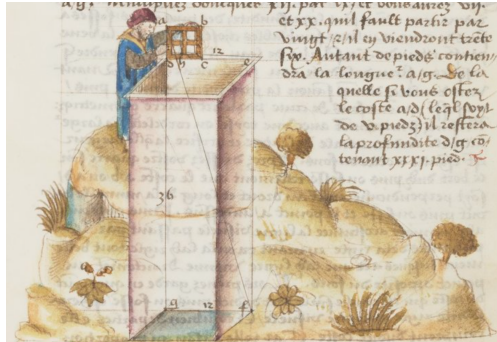 a/g. multipliez doncques xij. par
et xx. quil fault partir par
vingt / & il en viendront trēte
six. Autant de pieds contien-
dra la longueᵗ a/g. De la
quelle si vous ostez
le coste a/d (leql̃ soyt
de v piedz) il restera
la profundite d/g cō
tenant xxxi. pied.
a b
d h c 12 e
36
g 12 f